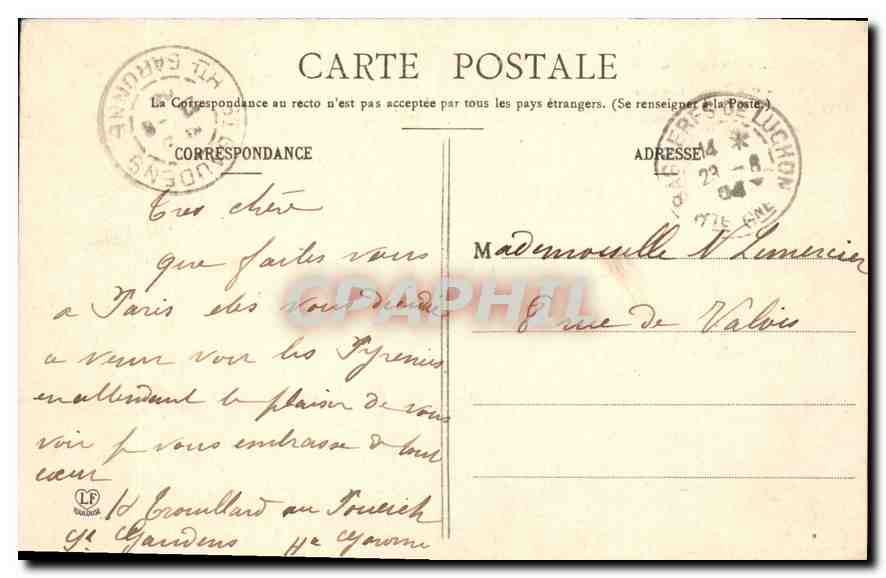 CARTE POSTALE
La Correspondance au recto n'est pas acceptée par tous les pays étrangers. (Se renseigner à la Poste.)
CORRESPONDANCE
ADRESSE
BAGNERES DE LUCHON
14 *
23 - 8
04
HTE GNE
GAUDENS
HTE GARONNE
Tres chère
que faites vous
a Paris etes vous
a venir voir les Pyrenies
en attendant le plaisir de vous
voir je vous embrasse de tout
cœur
Trouillard au
St Gaudens Hte Garonne
LF
TOULOUSE
Mademoiselle N Lemercier
8 rue de Valois
CPAPHIL